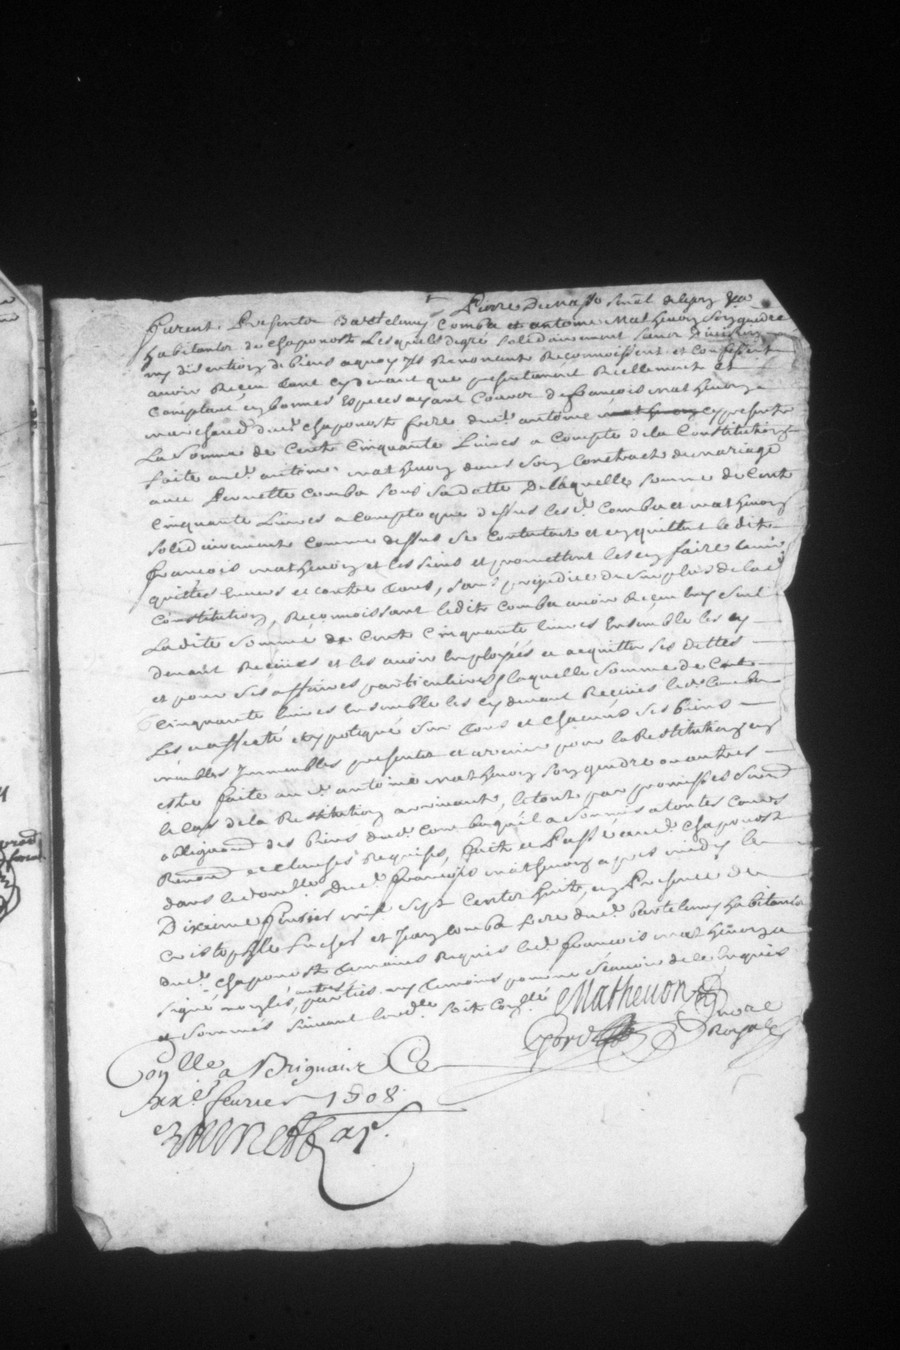 furent Presents Bartelemy Comba et antoine Mathevon son gendre
habitants de chaponost Lesquels degre solidairement sans division
ny discution de biens a quoy ils Renoncent Reconnoissent et Confessent
avoir Receu tant cydevant que presentement Reellement et
Comptant en bonnes Especes ayant Cours de françois mathevon
marchand dud. chaponost frere dud. antoine cy present
La somme de Cent Cinquante Livres a Compte de la Constitution
faite aud. antoine mathevon dans son Contract de mariage
avec Pernette Comba sous sa datte De laquelle somme de Cent
Cinquante Livres a compte que dessus lesd. Comba et mathevon
solidairement comme dessus se contentent et en quittent ledit
françois mathevon et les siens et promettent les en faire tenir
quittes Envers et contre tous, sans prejudice du surplus de lad.
Constitution, Reconnoissant ledit Comba avoir Receu luy seul
Ladite somme de Cent Cinquante livres Ensemble les cy
devant Receües et les avoir Employées a acquitter ses dettes
et pour ses affaires particulieres laquelle somme de Cent
Cinquante livres Ensemble les cydevant Receües led. Comba
Les a assecté et ypotequé sur tous et chacuns ses biens
meubles Immeubles presents et avenir pour la Restitution en
estre faite aud. antoine mathevon son gendre ou autres
le Cas de la Restitution arrivant, le tout par promesses
obligeant des biens dud. Comba
Renond. et clauses Requises, fait et Passé aud. chaponost
dans le domicile dud. françois mathevon apres midy le
Dixieme fevrier mil sept Cents huit, en Presence de
Cristophle et Jean Comba frere dud. bartelemy habitants
dud. chaponost temoins Requis led. françois mathevon a
signé non les autres parties ny temoins pour ne sçavoir de ce Enquis
et sommés suivant lord.ce soit Conllé Mathevon
Nore
Royal
Conllé a Brignais Ce
fevrier 1708